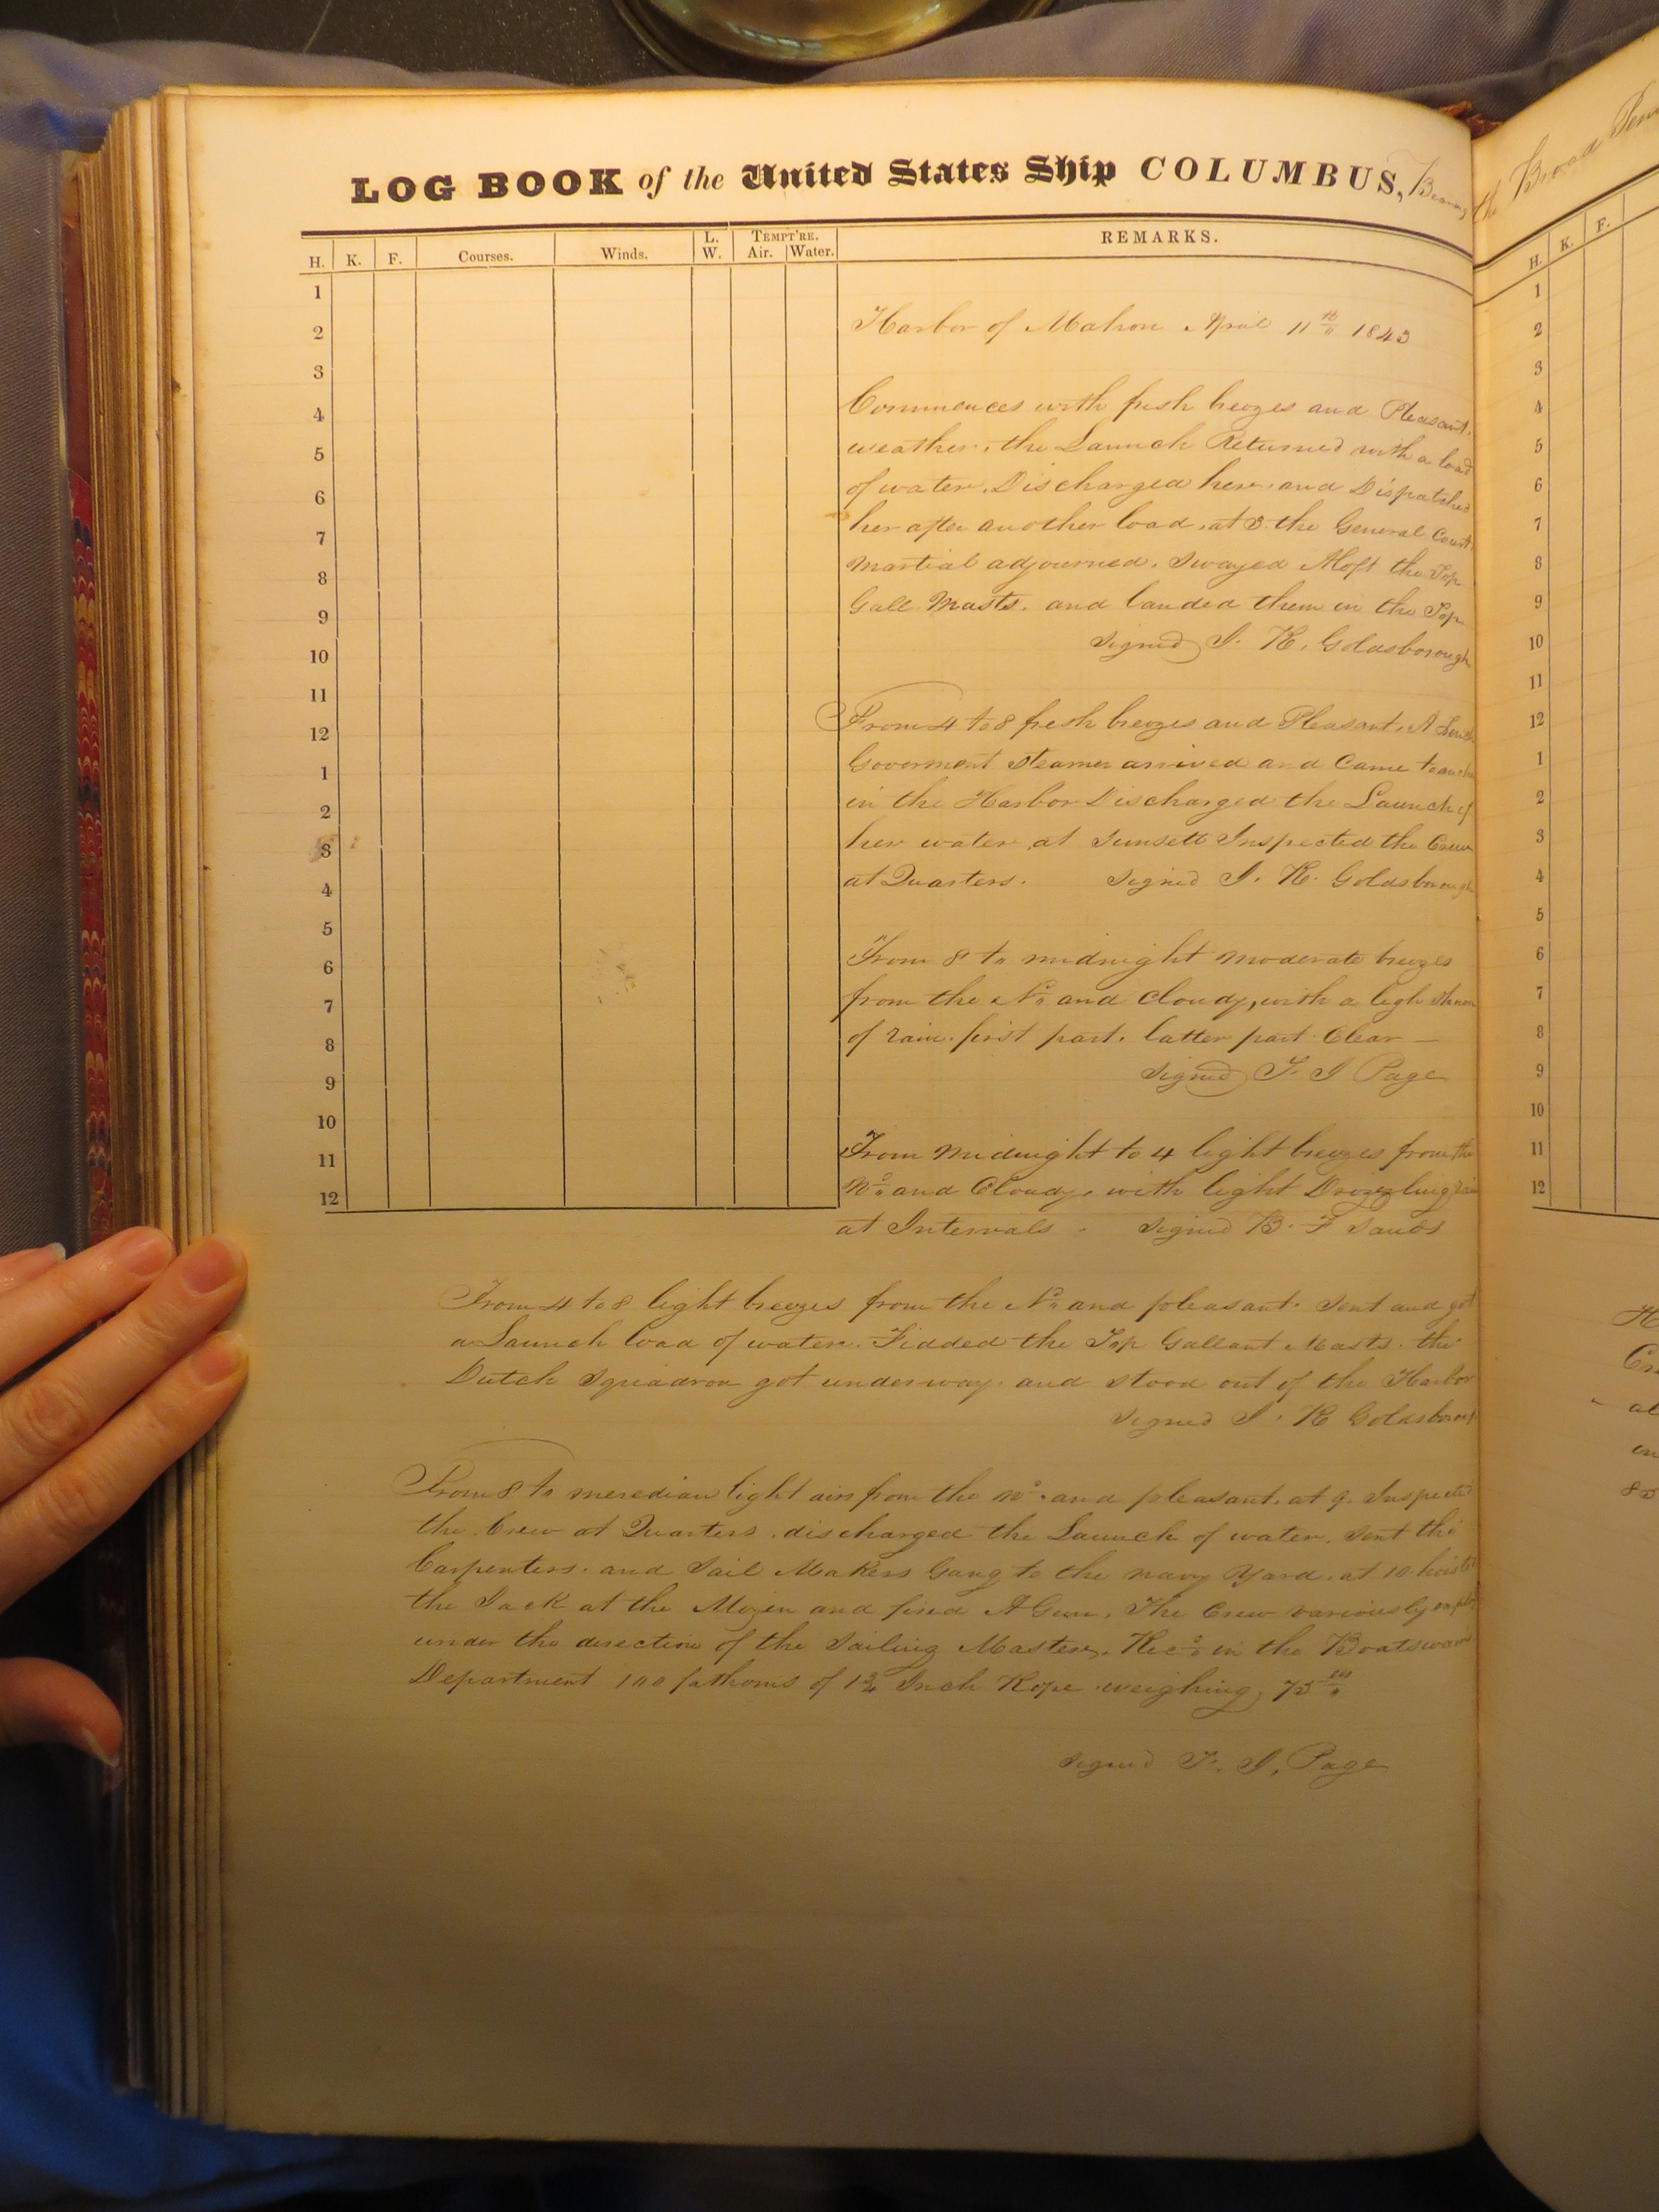 LOG BOOK of the United States Ship COLUMBUS, Bearing
H. K. F. Courses. Winds. L. W. TEMPT'RE. Air. Water. REMARKS.
1
2
3
4
5
6
7
8
9
10
11
12
1
2
3
4
5
6
7
8
9
10
11
12
Harbor of Mahon April 11th 1843
Commences with fresh breezes and Pleasant
weather, the Launch Returned with a load
of water. Discharged her and Dispatched
her after another load, at 3 the General Court
Martial adjourned. Swayed Aloft the Top
Gall Masts. and landed them in the Top
Signed J. R. Goldsborough
From 4 to 8 fresh breezes and Pleasant. A
Goverment Steamer arrived and Came to
in the Harbor Discharged the Launch of
her water at Sunsett Inspected the Crew
at Quarters. Signed J. R. Goldsborough
From 8 to midnight moderate breezes
from the No and Cloudy, with a ligh
of rain first part. latter part Clear —
Signed T. J Page
From Midnight to 4 light breezes from the
No and Cloudy, with light Drozzling rain
at Intervals. Signed B. F Sands
From 4 to 8 light breezes from the No and pleasant. Sent and got
a Launch load of water. Fidded the Top Gallant Masts. the
Dutch Squadron got underway. and stood out of the Harbor
Signed J. R Goldsborough
From 8 to meredian light airs from the No. and pleasant. at 9. Inspected
the Crew at Quarters. discharged the Launch of water. Sent the
Carpenters. and Sail Makers Gang to the navy Yard. at 10 hoisted
the Jack at the Mizen and fired A Gun. The Crew variously
under the direction of the Sailing Master. Recd in the Boatswain
Department 100 fathoms of 1 3/4 Inch Rope weighing 75 lbs
Signed T. J. Page
the Broad
H. K. F.
1
2
3
4
5
6
7
8
9
10
11
12
1
2
3
4
5
6
7
8
9
10
11
12